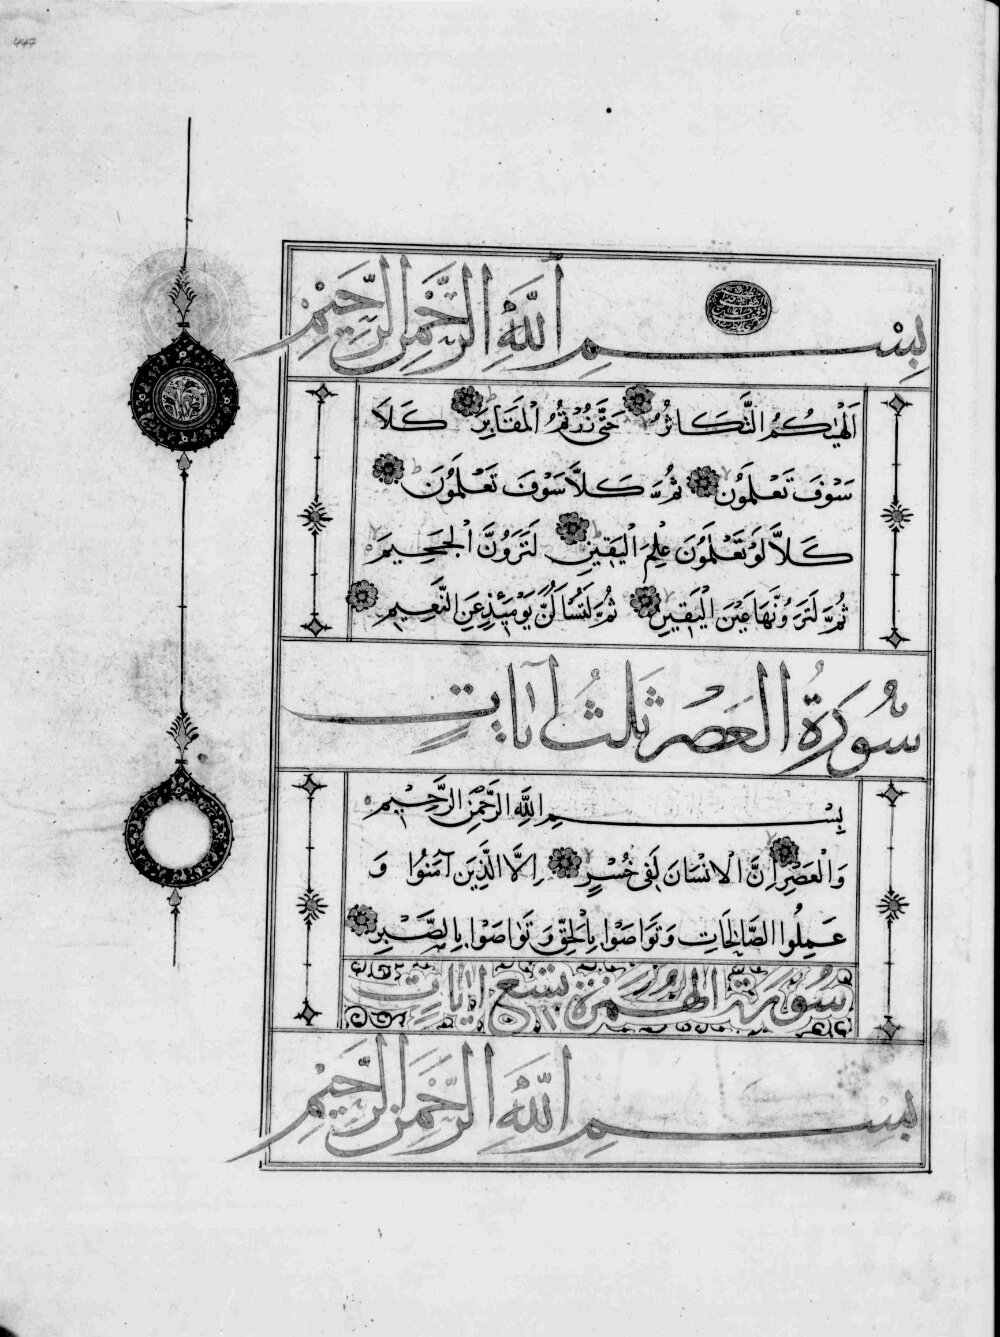 447
بِسْمِ اللَّهِ الرَّحْمَٰنِ الرَّحِيمِ
اَلْهٰيكُمُ التَّكَاثُرُ حَتَّى زُرْتُمُ الْمَقَابِرَ كَلَّا
سَوْفَ تَعْلَمُونَ ثُمَّ كَلَّا سَوْفَ تَعْلَمُونَ
كَلَّا لَوْ تَعْلَمُونَ عِلْمَ الْيَقِينِ لَتَرَوُنَّ الْجَحِيمَ
ثُمَّ لَتَرَوُنَّهَا عَيْنَ الْيَقِينِ ثُمَّ لَتُسْأَلُنَّ يَوْمَئِذٍ عَنِ النَّعِيمِ
سُورَةُ الْعَصْرِ ثَلٰثُ اٰيَاتٍ
بِسْمِ اللَّهِ الرَّحْمٰنِ الرَّحِيمِ
وَالْعَصْرِ اِنَّ الْاِنْسَانَ لَفِى خُسْرٍ اِلَّا الَّذِينَ آمَنُوا وَ
عَمِلُوا الصَّالِحَاتِ وَتَوَاصَوْا بِالْحَقِّ وَتَوَاصَوْا بِالصَّبْرِ
سُورَةُ الْهُمَزَةِ تِسْعُ اٰيَاتٍ
بِسْمِ اللَّهِ الرَّحْمٰنِ الرَّحِيمِ